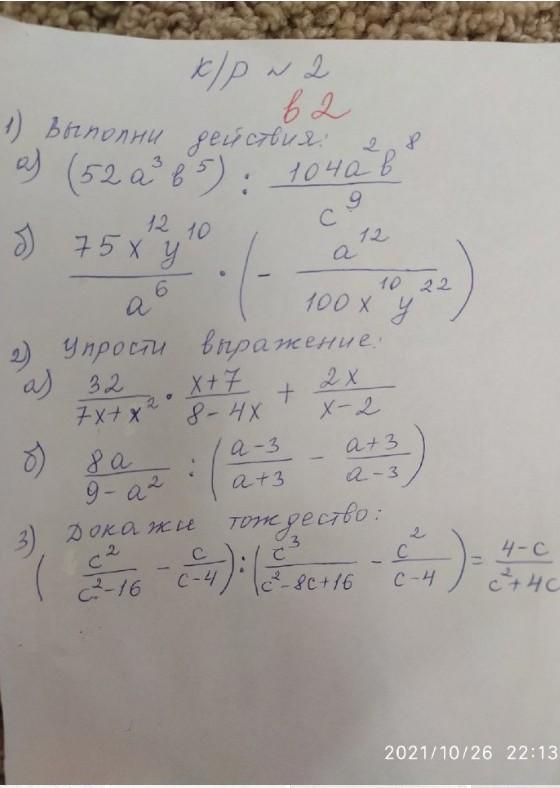 к/р № 2
в 2
1) Выполни действия:
а) (52a³b⁵) : 104a²b⁸/c⁹
б) 75x¹²y¹⁰/a⁶ · (- a¹²/100x¹⁰y²²)
2) Упрости выражение:
а) 32/7x+x² · x+7/8-4x + 2x/x-2
б) 8a/9-a² : (a-3/a+3 - a+3/a-3)
3) Докажи тождество:
(c²/c²-16 - c/c-4) : (c³/c²-8c+16 - c²/c-4) = 4-c/c²+4c
2021/10/26 22:13